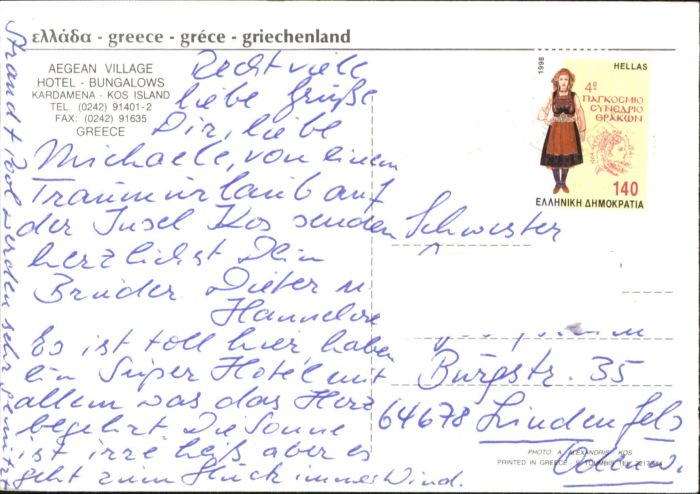 ελλάδα - greece - gréce - griechenland
AEGEAN VILLAGE
HOTEL - BUNGALOWS
KARDAMENA - KOS ISLAND
TEL. (0242) 91401-2
FAX: (0242) 91635
GREECE
Recht viele
liebe Grüße
Dir, liebe
Michaele, von einem
Traumurlaub auf
der Insel Kos senden
herzlichst Dein
Bruder Dieter u.
Hannelore
Es ist toll hier haben
ein Super Hotel mit
allem was das Herz
begehrt Die Sonne
ist irre heiß aber es
geht zum Glück immer Wind.
Strand + Pool werden sehr genutzt
1998
HELLAS
4º
ΠΑΓΚΟΣΜΙΟ
ΣΥΝΕΔΡΙΟ
ΘΡΑΚΩΝ
140
ΕΛΛΗΝΙΚΗ ΔΗΜΟΚΡΑΤΙΑ
Schwester
Burgstr. 35
64678 Lindenfels
Odenw.
PHOTO: A. ALEXANDRIS KOS
PRINTED IN GREECE